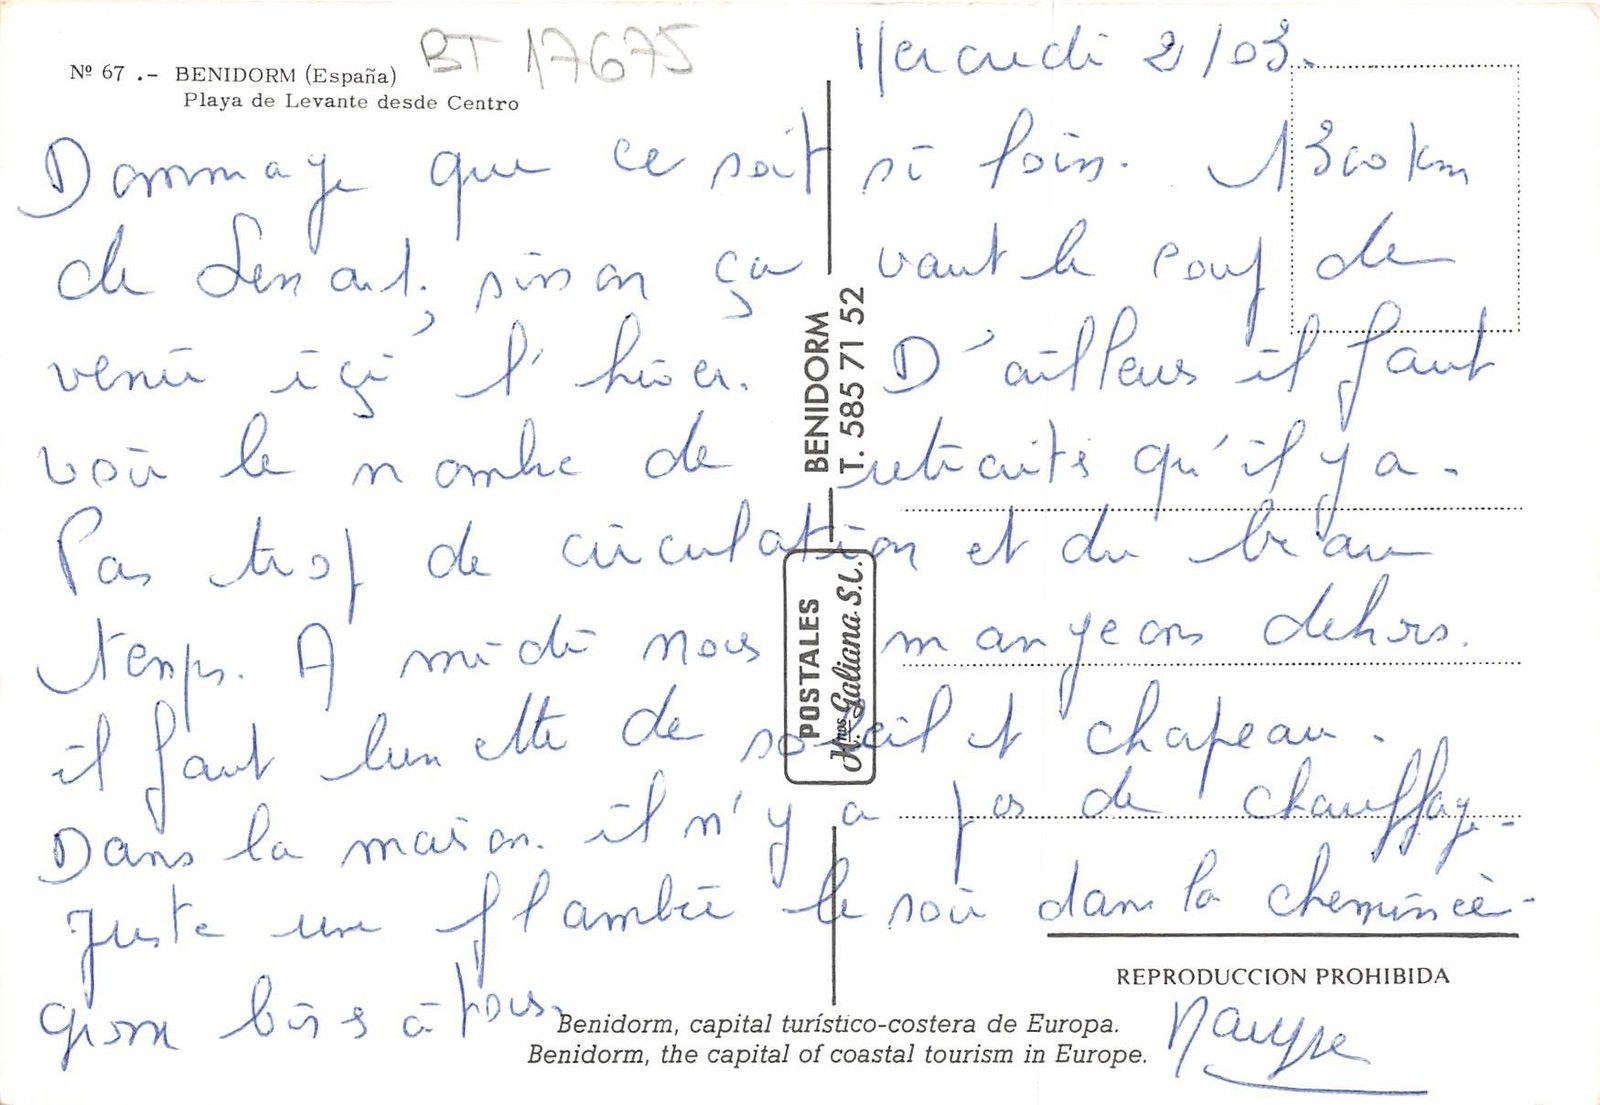 BT 17675
Nº 67 .- BENIDORM (España)
Playa de Levante desde Centro
Mercredi 2/03.
Dommage que ce soit si loin. 1300 km
de , sinon ça vaut le coup de
venir içi l'hiver. D'ailleurs il faut
voir le nombre de retraités qu'il y a.
Pas trop de circulation et du beau
temps. A midi nous mangeons dehors.
il faut lunette de soleil et chapeau.
Dans la maison il n'y a pas de chauffage.
Juste une flambée le soir dans la cheminée.
gros bises à tous.
BENIDORM
T. 585 71 52
POSTALES
Hnos Galiana S.L.
REPRODUCCION PROHIBIDA
Benidorm, capital turístico-costera de Europa.
Benidorm, the capital of coastal tourism in Europe.